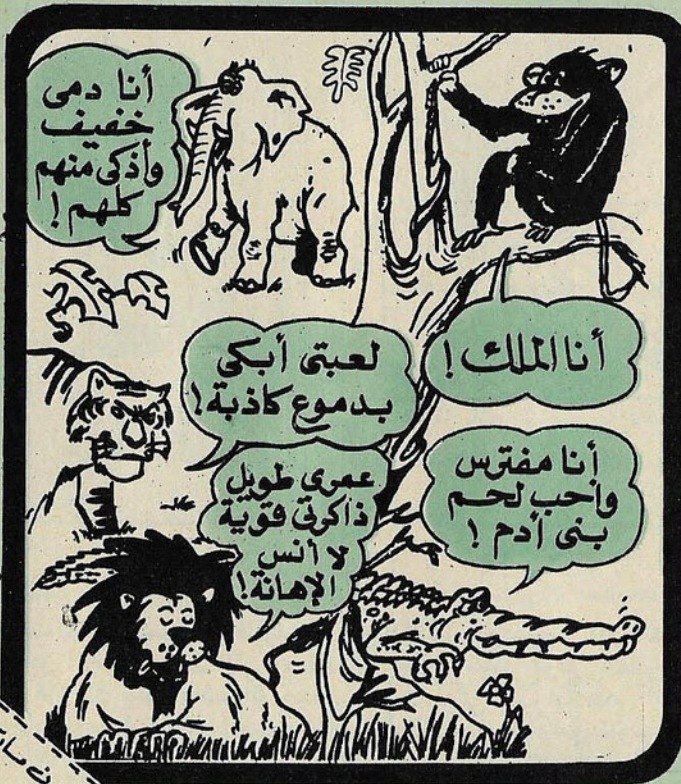 أنا دمى
خفيف
وأذكى منهم
كلهم !
أنا الملك !
لعبتى أبكى
بدموع كاذبة !
أنا مفترس
وأحب لحم
بنى أدم !
عمرى طويل
ذاكرتى قوية
لا أنس
الإهانة !